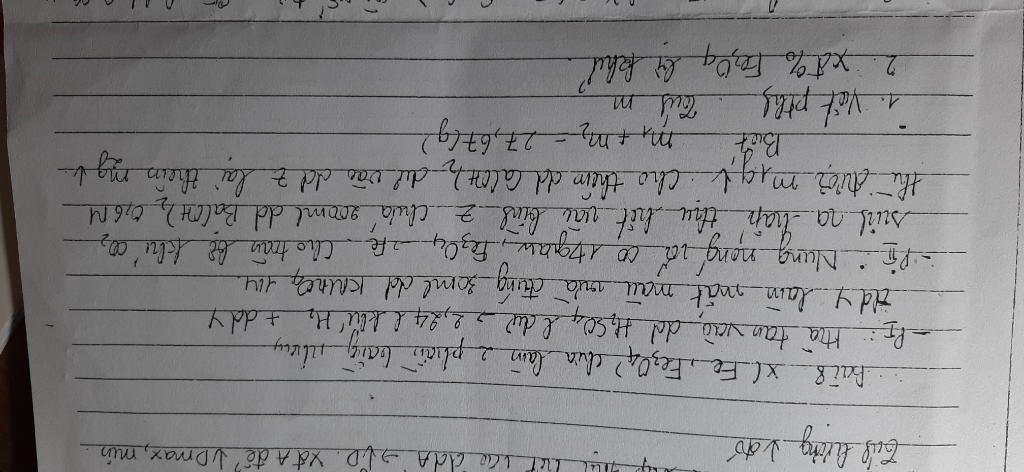 Tính lượng ↓ đó
Bài 8 X (Fe, Fe3O4) chia làm 2 phần bằng nhau
- PI: Hoà tan vào dd H2SO4 l dư → 2,24 l khí H2 + dd Y
dd Y làm mất màu vừa đúng 30ml dd KMnO4 1M.
- PII: Nung nóng với CO 1 tgian, Fe3O4 → Fe. Cho toàn bộ khí CO2
sinh ra hấp thụ hết vào bình Z chứa 200ml dd Ba(OH)2 0,6M
thì được m1 g ↓. Cho thêm dd Ca(OH)2 dư vào dd Z lại thêm m2 g ↓
Biết m1 + m2 = 27,67 (g)
1. Viết pthh Tính m
2. xđ % Fe3O4 bị khử